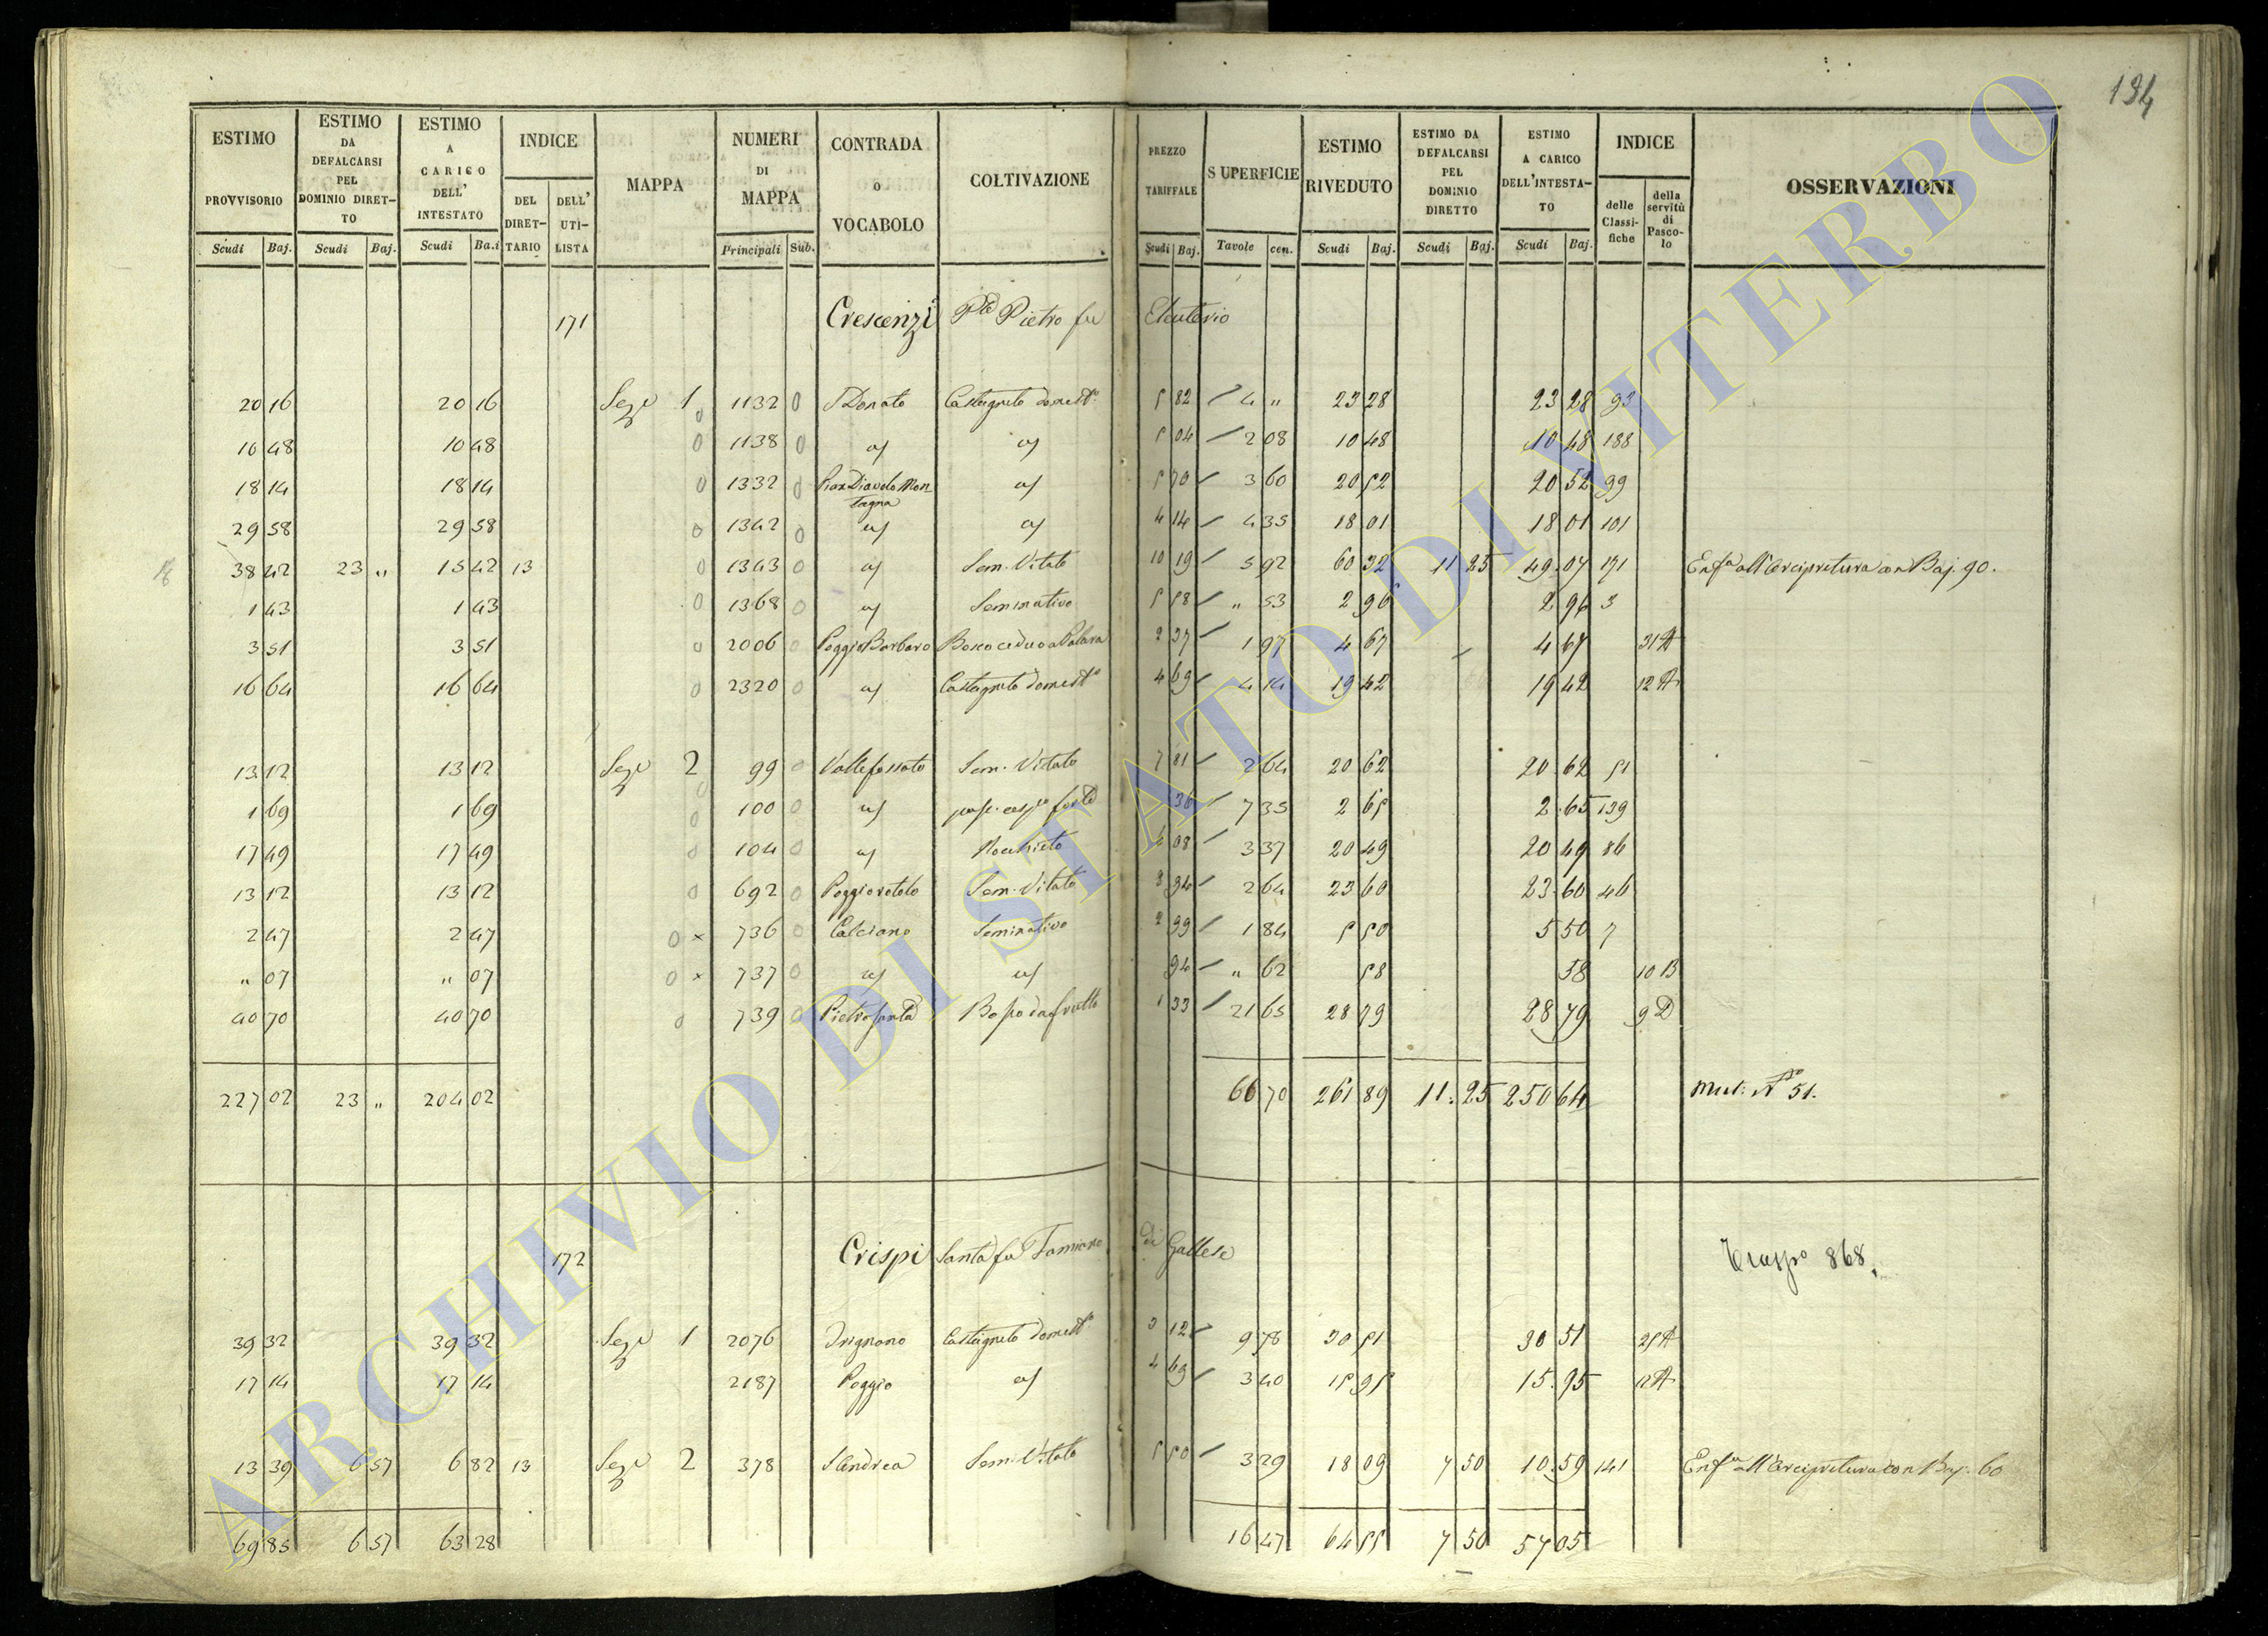 134
ESTIMO PROVVISORIO Scudi Baj. ESTIMO DA DEFALCARSI PEL DOMINIO DIRET-TO Scudi Baj. ESTIMO A CARICO DELL' INTESTATO Scudi Ba.i INDICE DEL DIRET-TARIO DELL' UTI-LISTA MAPPA NUMERI DI MAPPA Principali Sub. CONTRADA O VOCABOLO COLTIVAZIONE PREZZO TARIFFALE Scudi Baj. SUPERFICIE Tavole cen. ESTIMO RIVEDUTO Scudi Baj. ESTIMO DA DEFALCARSI PEL DOMINIO DIRETTO Scudi Baj. ESTIMO A CARICO DELL'INTESTA-TO Scudi Baj. INDICE delle Classi-fiche della servitù di Pasco-lo OSSERVAZIONI
171 Crescenzi Pietro fu Eleuterio
20 16 20 16 Sez. 1 0 1132 0 S Donato Castagneto domest.o 5 82 4 " 23 28 23 28 93
10 48 10 48 0 1138 0 a/ a/ 5 04 2 08 10 48 10 48 188
18 14 18 14 0 1332 0 Pian Diavolo Mon-tagna a/ 5 70 3 60 20 52 20 52 99
29 58 29 58 0 1342 0 a/ a/ 4 14 4 35 18 01 18 01 101
38 42 23 " 15 42 13 0 1343 0 a/ Sem. Vitato 10 19 5 92 60 32 11 25 49 07 171 Enf.a all'Arcipretura con Baj. 90.
1 43 1 43 0 1368 0 a/ Seminativo 5 58 " 53 2 96 2 96 3
3 51 3 51 0 2006 0 Poggio Barbaro Bosco ceduo a Palara 2 37 1 97 4 67 4 67 31 A
16 64 16 64 0 2320 0 a/ Castagneto domest.o 4 69 4 14 19 42 19 42 12 A
13 12 13 12 Sez. 2 0 99 0 Vallefossato Sem. Vitato 7 81 2 64 20 62 20 62 51
1 69 1 69 0 100 0 a/ 36 7 35 2 65 2 65 139
17 49 17 49 0 104 0 a/ 6 08 3 37 20 49 20 49 86
13 12 13 12 0 692 0 Poggiorotolo Sem. Vitato 8 94 2 64 23 60 23 60 46
2 47 2 47 0 x 736 0 Calciano Seminativo 2 99 1 84 5 50 5 50 7
" 07 " 07 0 x 737 0 a/ a/ 94 " 62 58 58 10 B
40 70 40 70 0 739 0 Bosco da frutto 1 33 21 65 28 79 28 79 9 D
227 02 23 " 204 02 66 70 261 89 11 25 250 64 Mut. N.o 51.
172 Crispi Santa fu Famiano di Gallese Trasp.o 868.
39 32 39 32 Sez. 1 2076 Irignano Castagneto domest.o 3 12 9 78 30 51 30 51 25 A
17 14 17 14 2187 Poggio a/ 4 69 3 40 15 95 15 95 12 A
13 39 6 57 6 82 13 Sez. 2 378 S Andrea Sem. Vitato 5 50 3 29 18 09 7 50 10 59 141 Enf.a all'Arcipretura con Baj. 60
69 85 6 57 63 28 16 47 64 55 7 50 57 05
ARCHIVIO DI STATO DI VITERBO